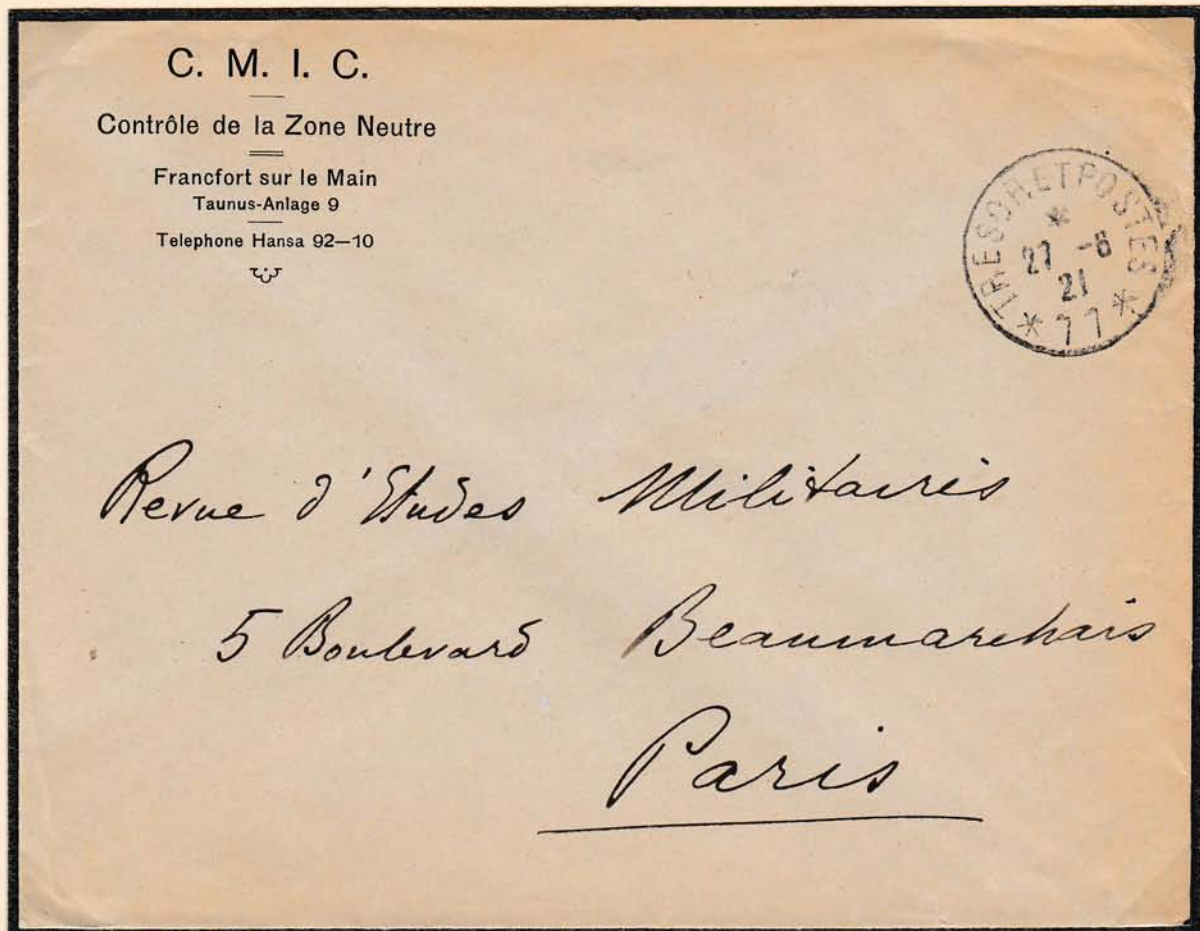 C. M. I. C.
Contrôle de la Zone Neutre
Francfort sur le Main
Taunus-Anlage 9
Telephone Hansa 92—10
TRESOR ET POSTES
*
27 -6
21
* 77 *
Revue d'Etudes Militaires
5 Boulevard Beaumarchais
Paris